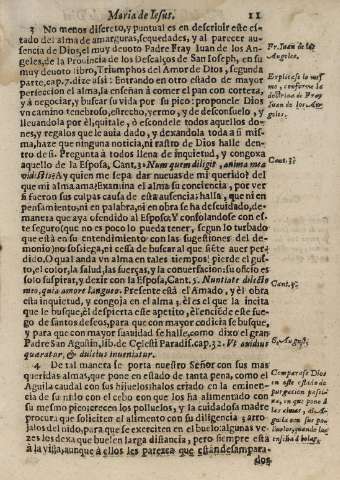 Maria de Iesus. 11
3 No menos discreto, y puntual es en describir este estado
del alma de amarguras, sequedades, y al parecer ausencia
de Dios, el muy deuoto Padre Fray Iuan de los Angeles,
de la Prouincia de los Descalços de San Ioseph, en su
muy deuoto libro, Triumphos del Amor de Dios, segunda
parte, cap. 7. dize assi: Entrando en otro estado de mayor
perfeccion el alma, la enseñan à comer el pan con corteza,
y à negociar, y buscar su vida por su pico: proponele Dios
vn camino tenebroso, estrecho, yermo, y de desconsuelo, y
lleuandola por èl, quitale, ò escondele todos aquellos dones,
y regalos que le auia dado, y dexandola toda a si misma,
haze que ninguna noticia, ni rastro de Dios halle dentro
de si. Pregunta à todos llena de inquietud, y congoxa
aquello de la Esposa, Cant. 3. Num quem diligit, anima mea
vidistis? Ay quien me sepa dar nueuas de mi querido? del
que mi alma ama? Examina el alma su conciencia, por ver
si fueron sus culpas causa de esta ausencia: halla, que ni en
pensamiento, ni en palabra, ni en obra se ha descuidado, de
manera que aya ofendido al Esposo: Y consolandose con este
seguro (que no es poco lo pueda tener, segun lo turbado
que està en su entendimiento con las sugestiones del demonio)
no sossiega, ni cessa de buscar al que siẽte auer perdido.
O qual anda vn alma en tales tiempos! pierde el gusto,
el color, la salud, las fuerças, y la conuersacion: su oficio es
solo suspirar, y dezir con la Esposa, Cant. 5. Nuntiate dilecto
meo, quia amore langueo. Presente està el Amado, y èl obra
esta inquietud, y congoja en el alma: èl es el que la incita
que le busque, èl despierta este apetito, èl enciẽde este fuego
de santos deseos, para que con mayor codicia se busque,
y para que con mayor suauidad se halle, como dixo el gran
Padre San Agustin, lib. de Celesti Paradis. cap. 32. Vt auidius
quæratur, & dulcius inueniatur.
4 De tal maneta se porta nuestro Señor con sus mas
queridas almas, que pone en estado de tanta pena, como el
Aguila caudal con sus hijuelos: halos criado en la eminencia
de su nido con el cebo con que los ha alimentado con
su mesmo pico: crecen los polluelos, y la cuidadosa madre
procura que soliciten el alimento con su diligencia; arrojalos
del nido, para que se exerciten en el buelo: algunas vezes
los dexa que buelen larga distancia, pero siempre està
à la vista, aunque à ellos les parezca que estàn desampara-
dos
Fr. Iuan de los
Angeles.
Explicase lo mismo,
conforme la
doctrina de Fray
Iuan de los Angeles.
Cant. 3.
Cant. 5.
S. August.
Comparase Dios
en este estado de